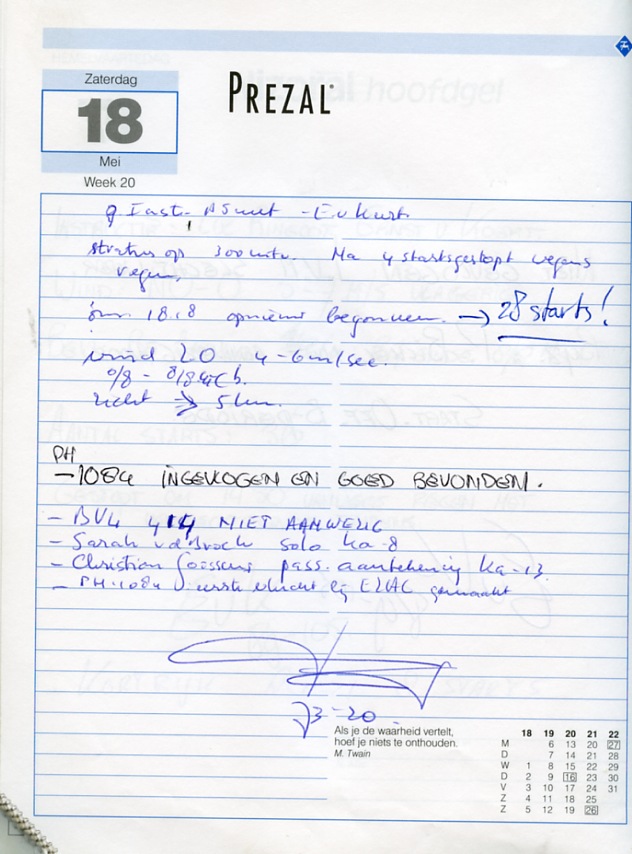 Zaterdag
18
Mei
Week 20
PREZAL
stratus op 300 mtr. Na 4 starts gestopt wegens
regen.
om 18.18 opnieuw begonnen. → 28 starts!
wind 20 4-6m/sec.
0/8 - 8/8
zicht → 5 km.
PH
-1084 INGEVLOGEN EN GOED BEVONDEN.
- BV4 414 NIET AANWEZIG
- Sarah vd Broeck solo Ka-8
- Christian Goossens pass. aantekening Ka-13
- PH-1084 eerste vlucht bij EZAC gemaakt
Als je de waarheid vertelt,
hoef je niets te onthouden.
M. Twain
18 19 20 21 22
M 6 13 20 27
D 7 14 21 28
W 1 8 15 22 29
D 2 9 16 23 30
V 3 10 17 24 31
Z 4 11 18 25
Z 5 12 19 26